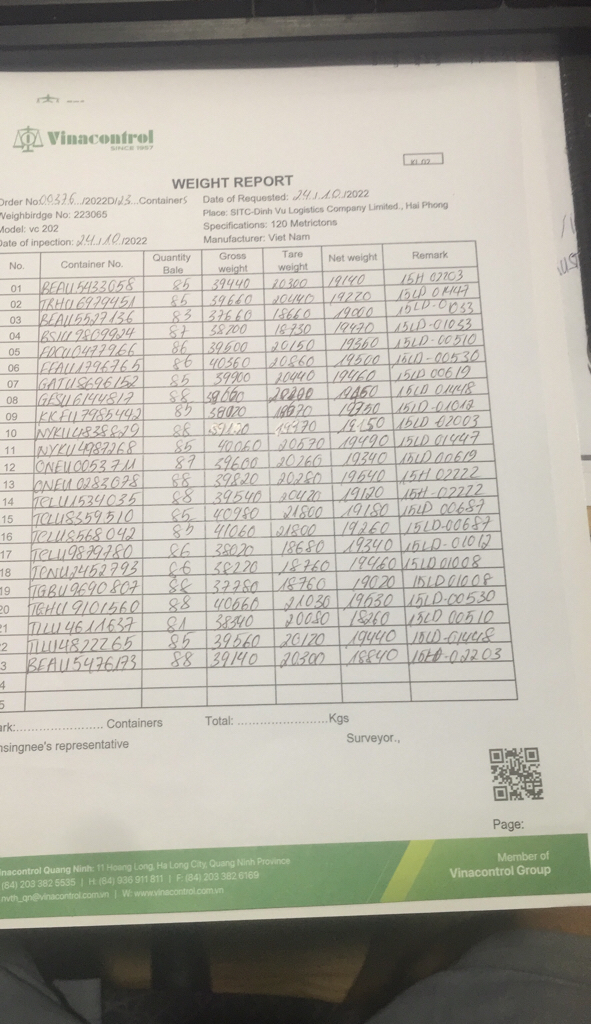 Vinacontrol
SINCE 1957
WEIGHT REPORT
Order No:00376.../2022D/23...Containers Date of Requested: 24/10/2022
Weighbirdge No: 223065 Place: SITC-Dinh Vu Logistics Company Limited., Hai Phong
Model: vc 202 Specifications: 120 Metrictons
Date of inpection: 24/10/2022 Manufacturer: Viet Nam
No. Container No. Quantity Bale Gross weight Tare weight Net weight Remark
01 BEAU5433058 85 39440 20300 19140 15H 02203
02 TRHU6979451 85 39660 20440 19220 15LD 01447
03 BEAU5527136 83 37660 18660 19000 15LD-01033
04 BSIU9809924 87 38200 18730 19470 15LD-01033
05 FDCU0477966 86 39500 20150 19350 15LD-00510
06 FFAU1796765 86 40360 20860 19500 15LD-00530
07 GATU8696152 85 39900 20440 19460 15LD 00619
08 GESU6144817 88 20200 19450 15LD 01448
09 KKFU7985442 85 38020 15LD-01012
10 NYKU4838829 88 19370 15LD-02003
11 NYKU4987268 85 40060 20570 19490 15LD 01447
12 ONEU0053711 87 39600 20260 19340 15LD 00619
13 ONEU0283078 88 39820 20280 19540 15H 02222
14 TCLU1534035 88 39540 20420 19120 15H-02222
15 TCLU8359510 85 40980 21800 19180 15LD 00687
16 TCLU8568042 85 41060 21800 19260 15LD-00687
17 TCLU9879780 86 38020 18680 19340 15LD-01012
18 TCNU2452793 86 38220 18760 19460 15LD 01008
19 TGBU9690807 88 37780 18760 19020 15LD 01008
20 TGHU9101560 88 40660 21030 19630 15LD-00530
21 TLLU4611637 81 38340 20080 18260 15LD 00510
22 TLLU4822265 85 39560 20120 19440 15LD-01448
23 BEAU5476173 88 39140 20300 18840 15H-02203
4
5
ark:........................ Containers Total: ........................Kgs
nsingnee's representative Surveyor.,
Page:
Vinacontrol Quang Ninh: 11 Hoang Long, Ha Long City, Quang Ninh Province
(84) 203 382 5535 | H: (84) 936 911 811 | F: (84) 203 382 6169
nvth_qn@vinacontrol.com.vn | W: www.vinacontrol.com.vn
Member of
Vinacontrol Group